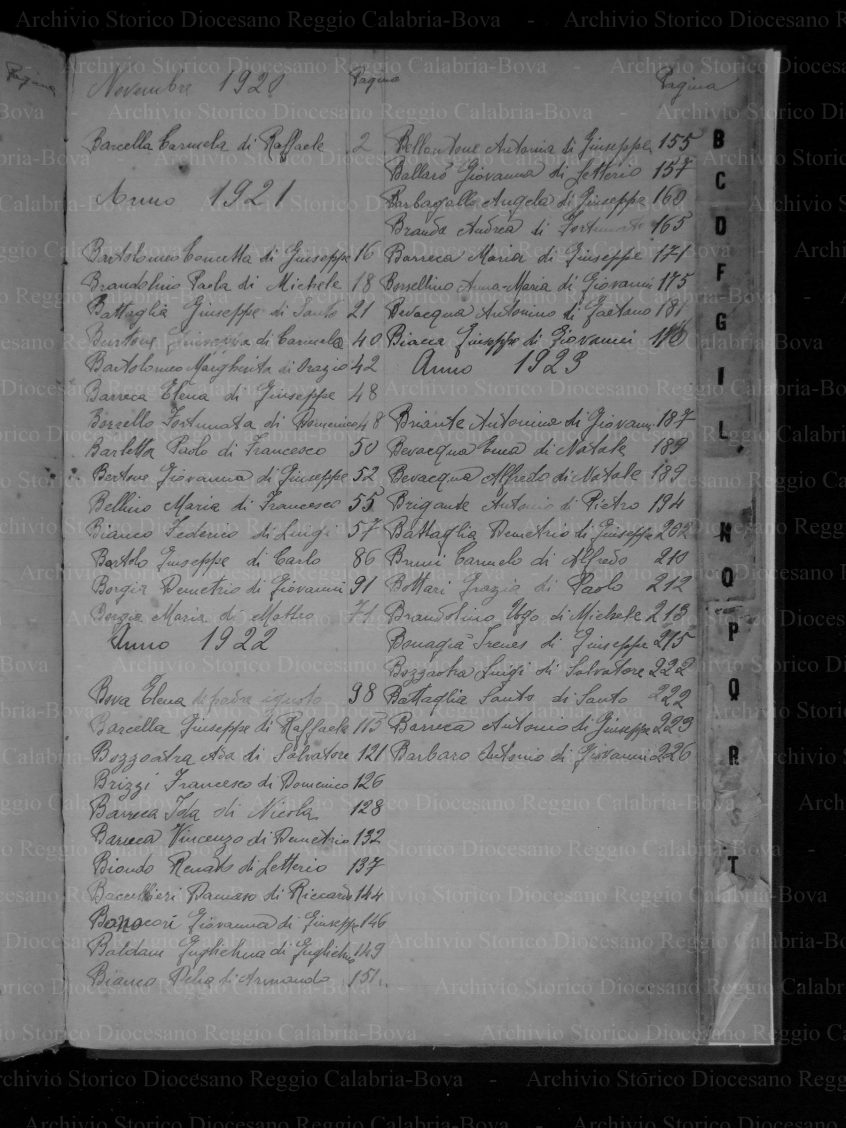 Novembre 1920 Pagina
Barcella Carmela di Raffaele 2
Anno 1921
Bartolomeo Concetta di Giuseppe 16
Brandolino Paola di Michele 18
Battaglia Giuseppe di Santo 21
Burtone di Carmela 40
Bartolomeo Margherita di Orazio 42
Barreca Elena di Giuseppe 48
Borrello Fortunata di Domenico 48
Barletta Paolo di Francesco 50
Bertone Giovanna di Giuseppe 52
Bellino Maria di Francesco 55
Bianco Federico di Luigi 57
Bartolo Giuseppe di Carlo 86
Borgia Demetrio di Giovanni 91
Borgia Maria di Matteo 71
Anno 1922
Bova Elena di padre ignoto 98
Barcella Giuseppe di Raffaele 113
Bozzaotra Ada di Salvatore 121
Brizzi Francesco di Domenico 126
Barreca Ida di Nicola 128
Barreca Vincenzo di Demetrio 132
Biondo Renato di Letterio 137
Baccellieri Damaso di Riccardo 144
Giovanna di Giuseppe 146
Baldani Guglielma di Guglielmo 149
Bianco Delia di Armando 151
Pagina
Bellantone Antonia di Giuseppe 155
Ballarò Giovanna di Letterio 157
Barbagallo Angela di Giuseppe 160
Branda Andrea di Fortunato 165
Barreca Maria di Giuseppe 171
Borsellino Anna-Maria di Giovanni 175
Bevacqua Antonino di Gaetano 181
Biacca Giuseppe di Giovanni
Anno 1923
Briante Antonina di Giovanni 187
Bevacqua Ema di Natale 189
Bevacqua Alfredo di Natale 189
Brigante Antonio di Pietro 194
Battaglia Demetrio di Giuseppe 202
Bruni Carmelo di Alfredo 210
Bottari Grazia di Paolo 212
Brandolino Ugo di Michele 213
Bonagia Irenes di Giuseppe 215
Bozzaotra Luigi di Salvatore 222
Battaglia Santo di Santo 222
Barreca Antonio di Giuseppe 223
Barbaro Antonio di Giovanni 226
B
C
D
F
G
I
L
N
O
P
Q
R
S
T
Pagina
Archivio Storico Diocesano Reggio Calabria-Bova